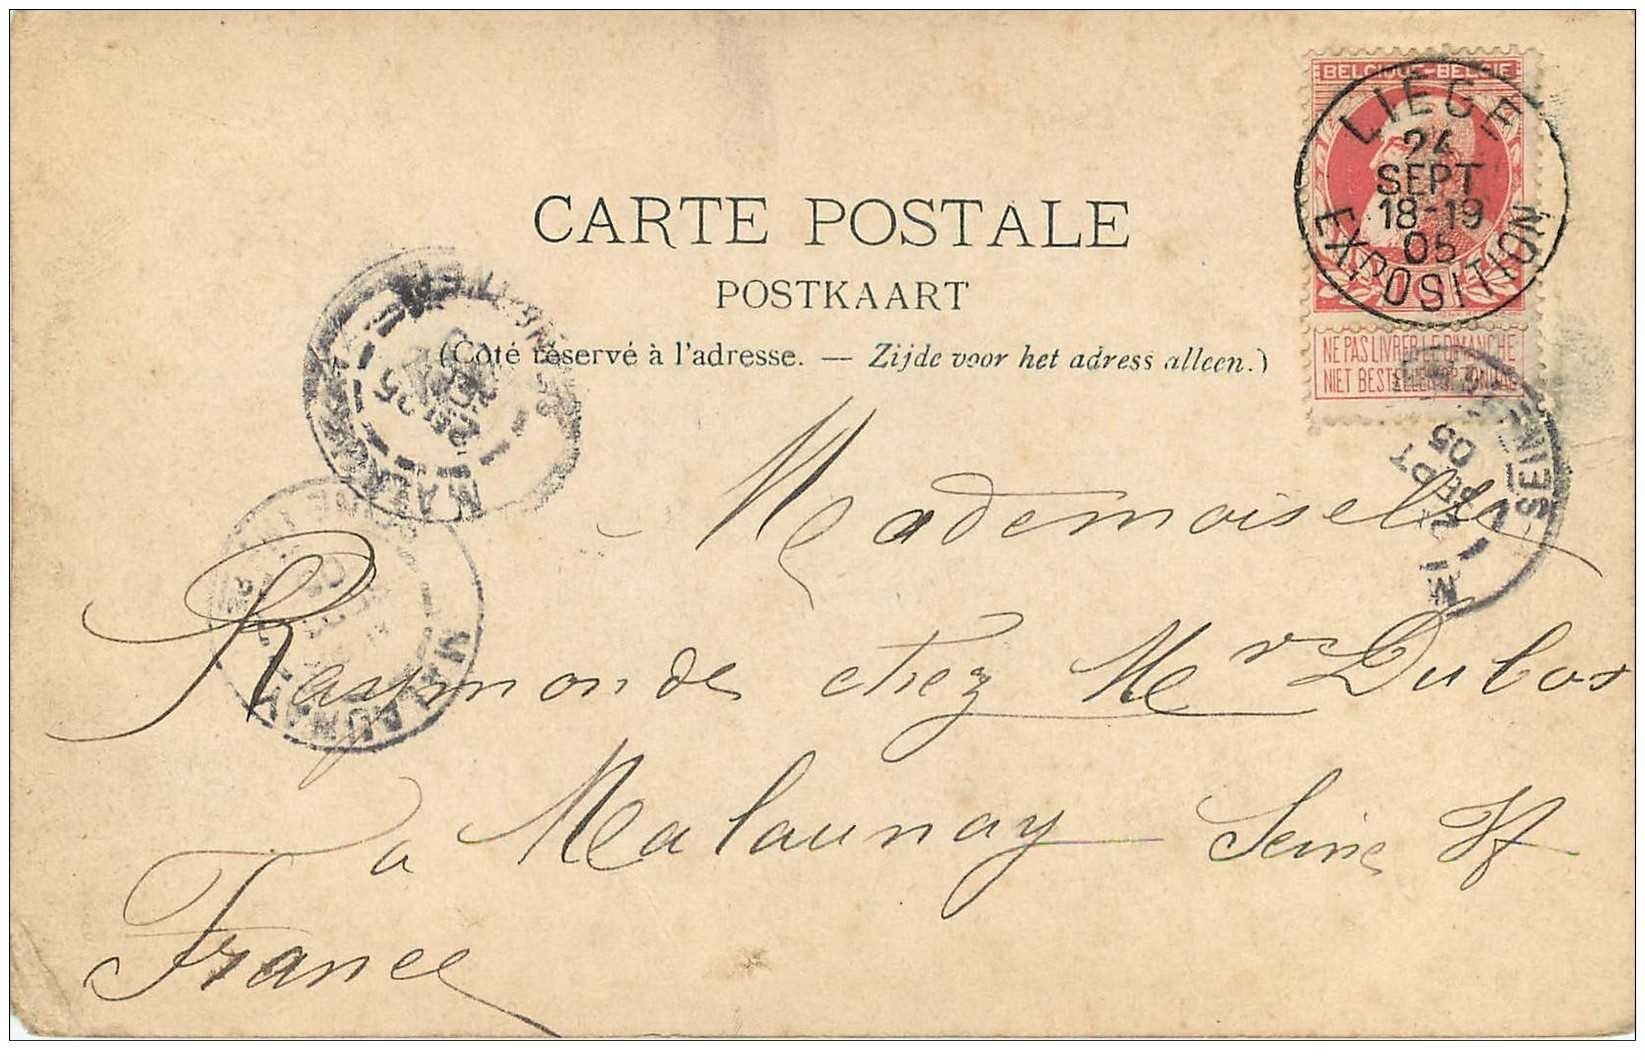 BELGIQUE-BELGIE
LIÈGE
24
SEPT
18-19
05
EXPOSITION
NE PAS LIVRER LE DIMANCHE
NIET BESTELLEN OP ZONDAG
CARTE POSTALE
POSTKAART
(Côté réservé à l'adresse. — Zijde voor het adress alleen.)
SEPT
05
SEINE
MALAUNAY
Mademoiselle
Raymonde chez Mr Dubos
à Malaunay Seine If
France